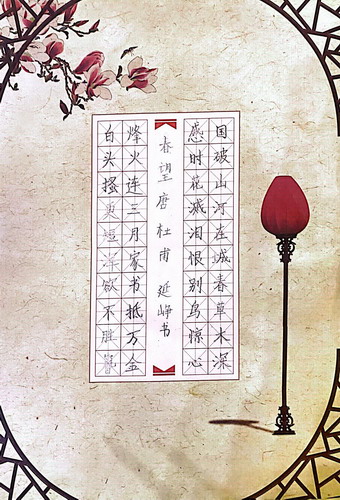 国破山河在城春草木深
感时花溅泪恨别鸟惊心
春望 唐 杜甫 延峥书
烽火连三月家书抵万金
白头搔更短浑欲不胜簪